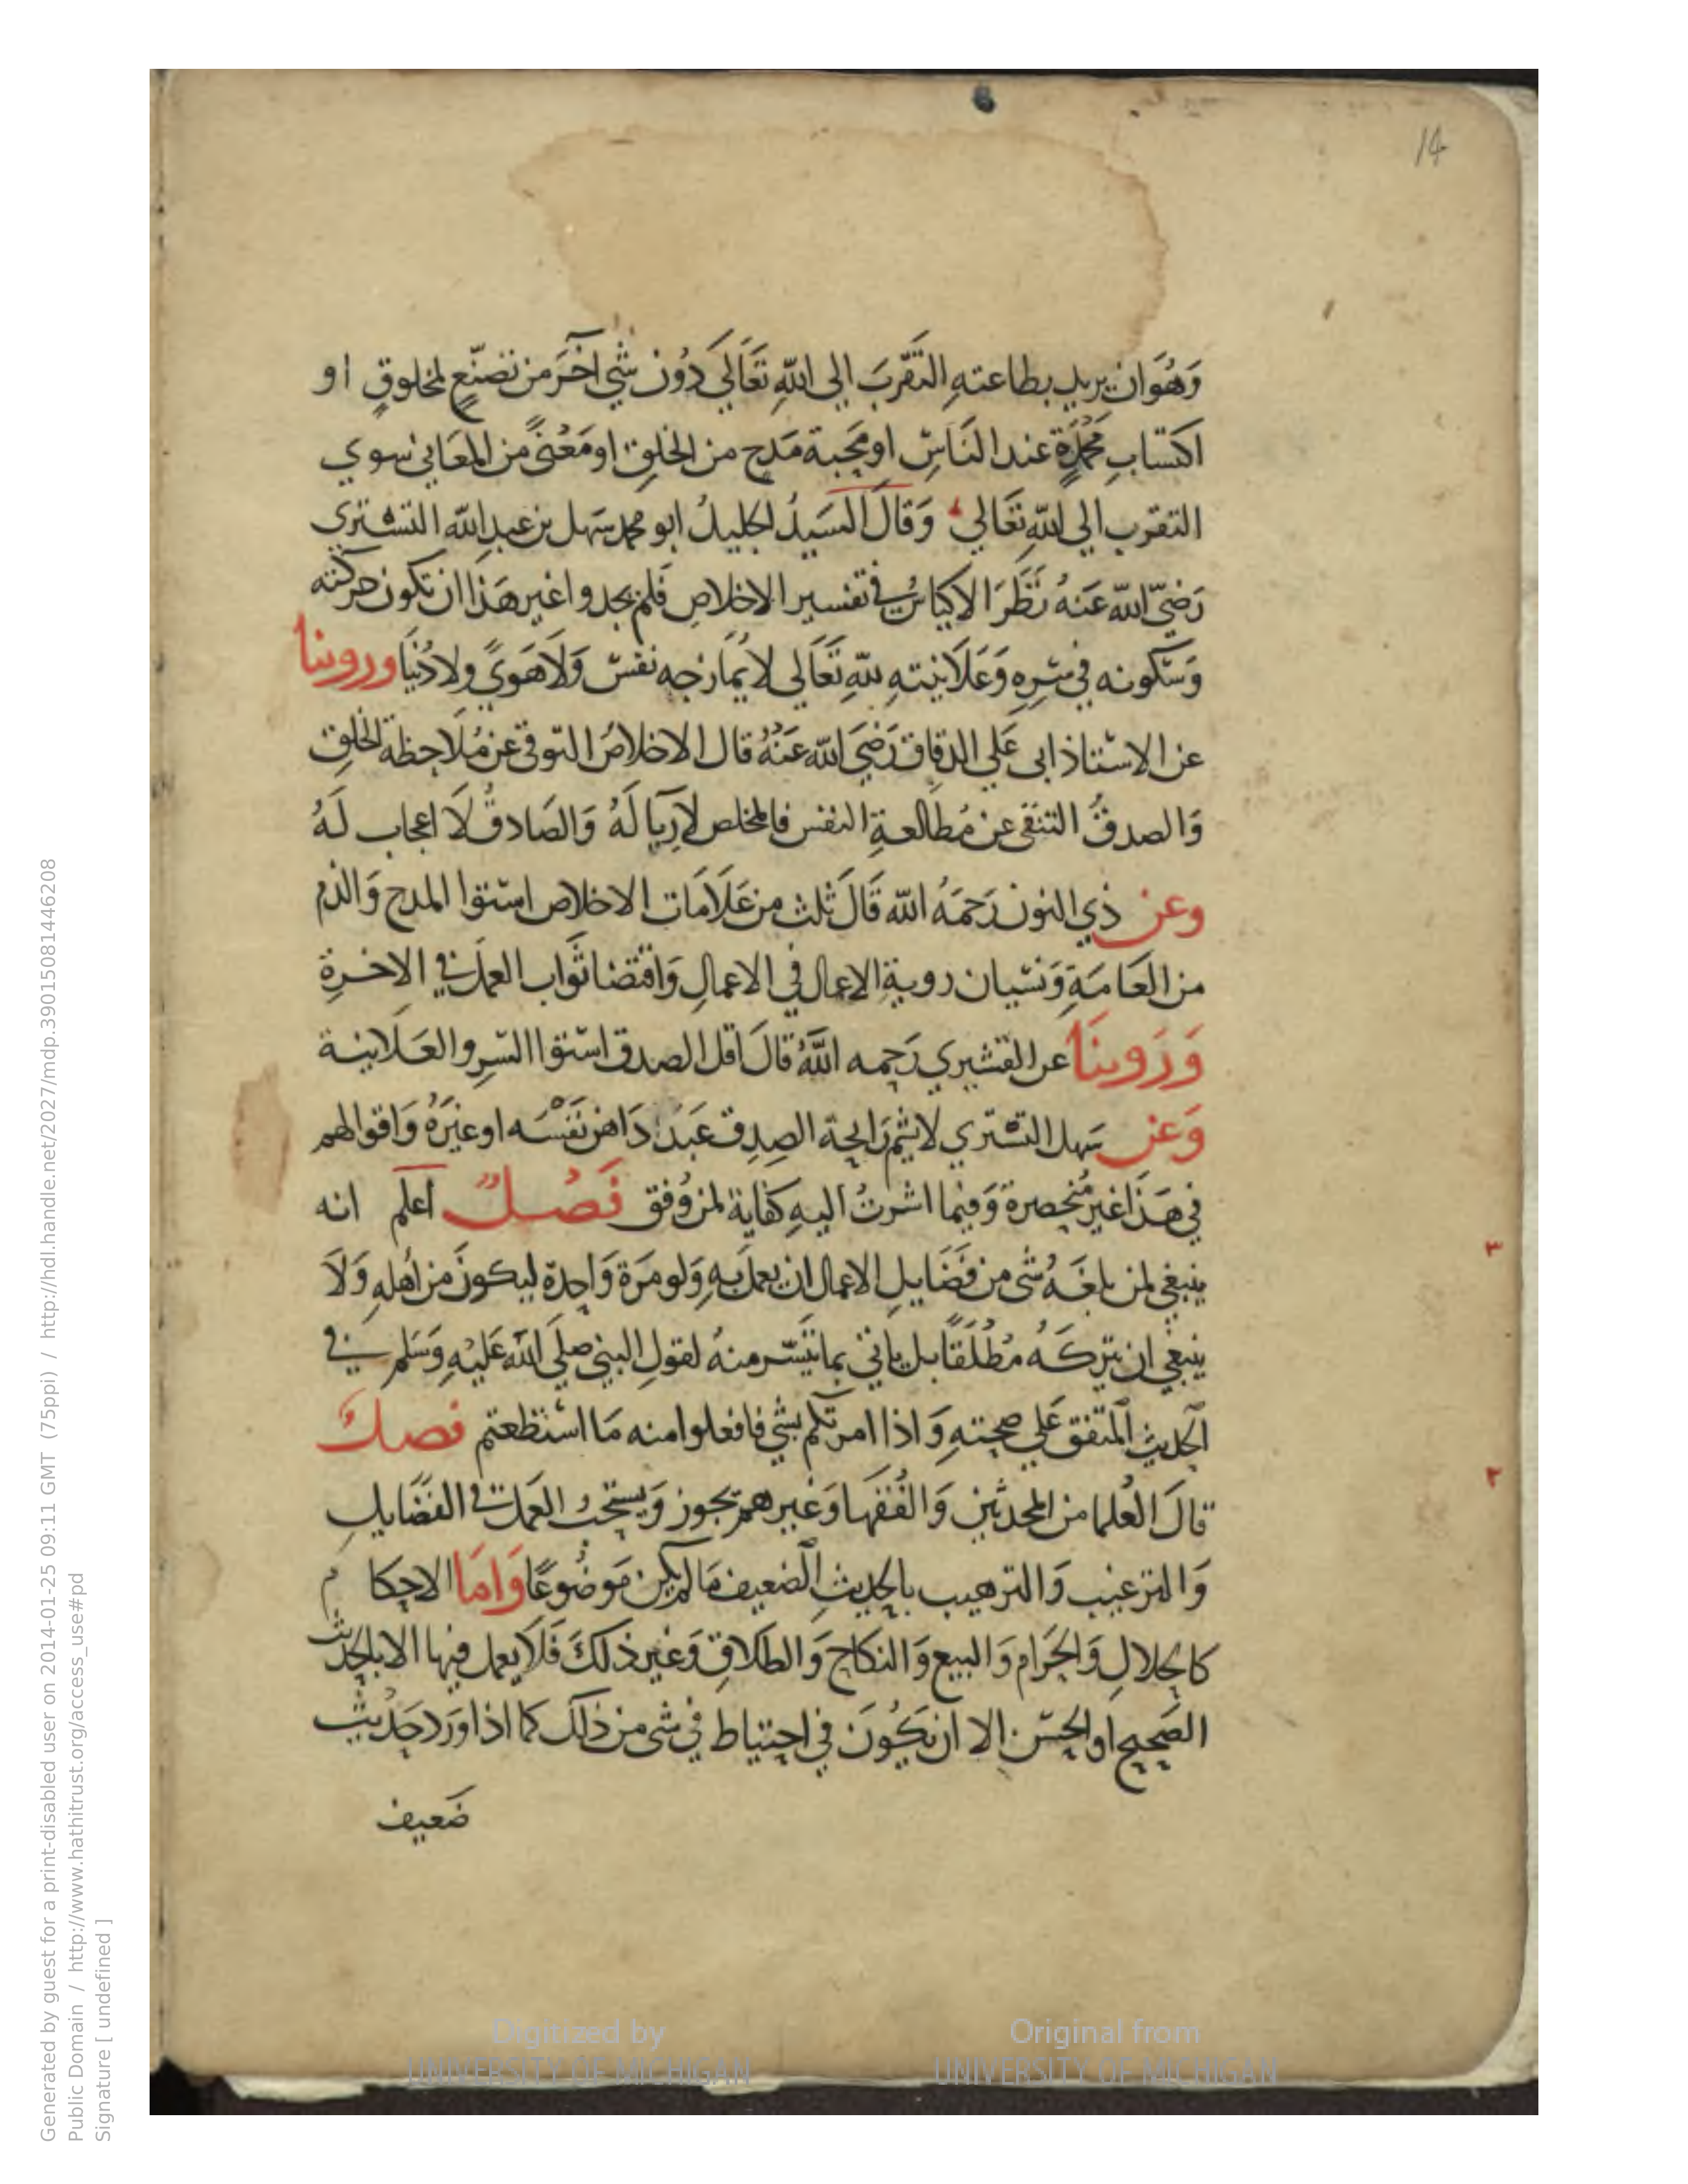 14
وَهُوَان يريد بطاعتهِ التَقَرّبَ الي اللهِ تَعَاَلَي دُون شَيٍ اخَرَ من تصَنّعٍ لمخلوقٍ او
اكتسابِ مَحمَدةٍ عند النَاسِ او مَحبة مَدحٍ من الخلقِ او مَعْنًى من المعَاني سوي
التقرب الي اللهِ تعَالي وَقالَ السَيدُ الجليلُ ابو محمد سَهل بن عبد الله التستري
رَضيَ الله عَنهُ نَظَرَ الاكياسُ في تفسير الاخلاصِ فَلم يجدوا غير هَذا ان تكون حركته
وَسكونه في سرِهِ وَعَلَانيتهِ للهِ تعَاَلي لا يُمازجه نفسٌ وَلَا هَوىً ولا دُنيَا وروينا
عن الاستاذ ابى عَلي الدقاق رَضيَ الله عَنْهُ قال الاخلاصُ التوقي عن مُلَاحظة الخلقِ
وَالصدقُ التنقى عن مُطالعةِ النفس فالمخلص لَا رِيَا لَهُ وَالصَادقُ لَا اعجاب لَهُ
وعن ذي النون رَحمَهُ الله قَالَ ثلث من عَلَامَات الاخلاص استوا المدح وَالذم
من العَامَةِ وَنسيان روية الاعمال في الاعمالِ وَاقتضا ثَواب العمل في الاخرةِ
وَرَوينَا عن القشيري رَحمِه اللَّهُ قالَ اقل الصدق استوا السرِ والعَلَانيَة
وَعن سَهل التستري لا يشم رَايحة الصِدق عَبدٌ دَاهن نَفْسَه او غيَرَهُ وَاقوالهم
في هَذَا غير مُنحصرة وَفيما اشرتُ اليهِ كفاية لمن وُفق فَصْلٌ اعلم انه
ينبغي لمن بلغَهُ شى من فَضَايلِ الاعمال ان يعملَ بهِ وَلو مَرَة وَاحدة ليكونَ من اهلهِ وَلَا
ينبغي ان يتركَهُ مُطْلَقًا بل ياتى بما تيَسَّر منهُ لقولِ النبي صلَي الله عَليْهِ وَسَلم في
الحديث المتفق عَلي صحتهِ وَاذا امرتكم بشيٍ فافعلوا منه مَا استطعتم فصلٌ
قالَ العُلما من المحدثين وَالفُقهَا وَغيرهم يجوز وَيستحبُ العَمل في الفضَايلِ
وَالترغيب وَالترهيب بالحديثِ الضعيف مَا لم يكن مَوضُوعًا وَامَا الاحكام
كالحلالِ وَالحَرام وَالبيع وَالنكاح وَالطلاقِ وَغير ذلكَ فَلَا يعمل فيها الا بالحديث
الصَحيح او الحسَن الا ان يَكُونَ في احتياط في شى من ذلك كما اذا وَرَد حَديث
ضَعيف
٣
٢
Generated by guest for a print-disabled user on 2014-01-25 09:11 GMT (75ppi) / http://hdl.handle.net/2027/mdp.39015081446208
Public Domain / http://www.hathitrust.org/access_use#pd
Signature [ undefined ]
Digitized by
UNIVERSITY OF MICHIGAN
Original from
UNIVERSITY OF MICHIGAN